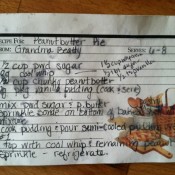 RECIPE FOR: Peanutbutter Pie
FROM: Grandma Beasly SERVES: 6-8
1/2 cup pwd sugar
cool whip
1/2 cup crunchy peanut butter
pkg vanilla pudding (cook + serve)
mix pwd sugar + p. butter
sprinkle some on bottom of baked
cook pudding + pour semi-cooled pudding
top with cool whip + remaining pean
sprinkle - refrigerate.